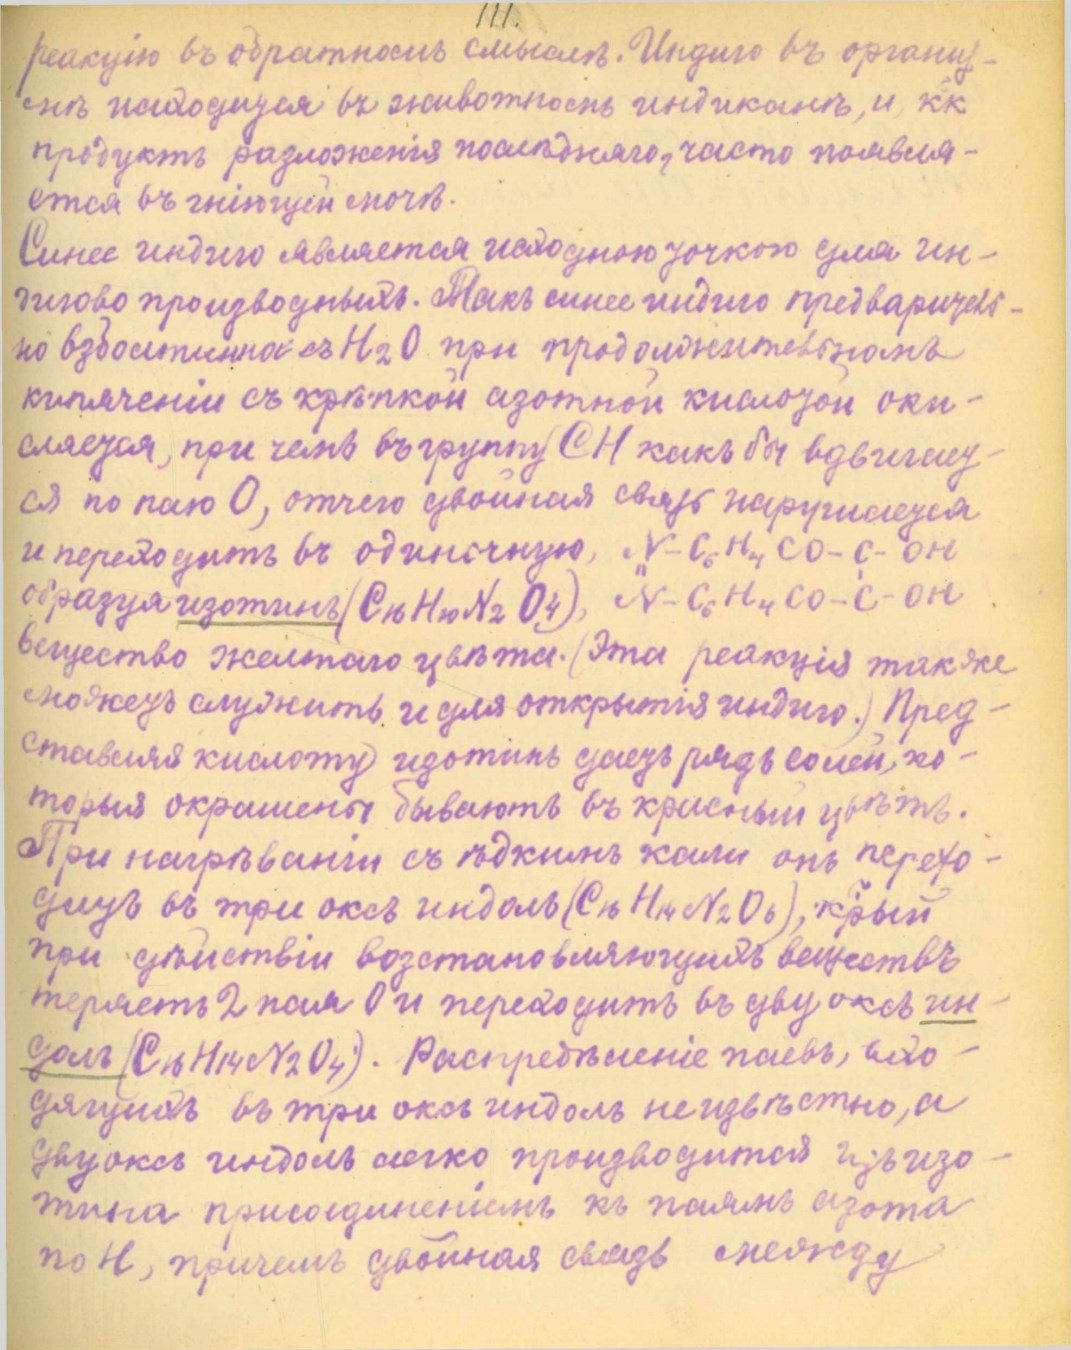 111.
реакцію въ обратномъ смыслѣ. Индиго въ организ-
мѣ находится въ животномъ индиканѣ, и, кк
продуктъ разложенія послѣдняго, часто появля-
ется въ гніющей мочѣ.
Синее индиго является исходною точкою для ин-
дигово производныхъ. Такъ синее индиго предваритель-
но взболтанное съ H2O при продолжительномъ
кипяченіи съ крѣпкой азотной кислотой оки-
сляется, при чемъ въ группу CH какъ бы вдвигает-
ся по паю O, отчего двойная связь нарушается
и переходитъ въ одиночную, N-C6H4CO-C-OH
образуя изотинъ (C16H10N2O4), N-C6H4CO-C-OH
вещество желтаго цвѣта. (Эта реакція также
можетъ служить и для открытія индиго.) Пред-
ставляя кислоту изотинъ даетъ рядъ солей, ко-
торыя окрашены бываютъ въ красный цвѣтъ.
При нагрѣваніи съ ѣдкимъ кали онъ перехо-
дитъ въ три оксъ индолъ (C16H14N2O6), к̈рый
при дѣйствіи возстановляющихъ веществъ
теряетъ 2 пая O и переходитъ въ двуоксъ ин-
долъ (C16H14N2O4). Распредѣленіе паевъ, вхо-
дящихъ въ три оксъ индолъ неизвѣстно, а
двуоксъ индолъ легко производится изъ изо-
тина присоединеніемъ къ паямъ азота
по H, причемъ двойная связь между